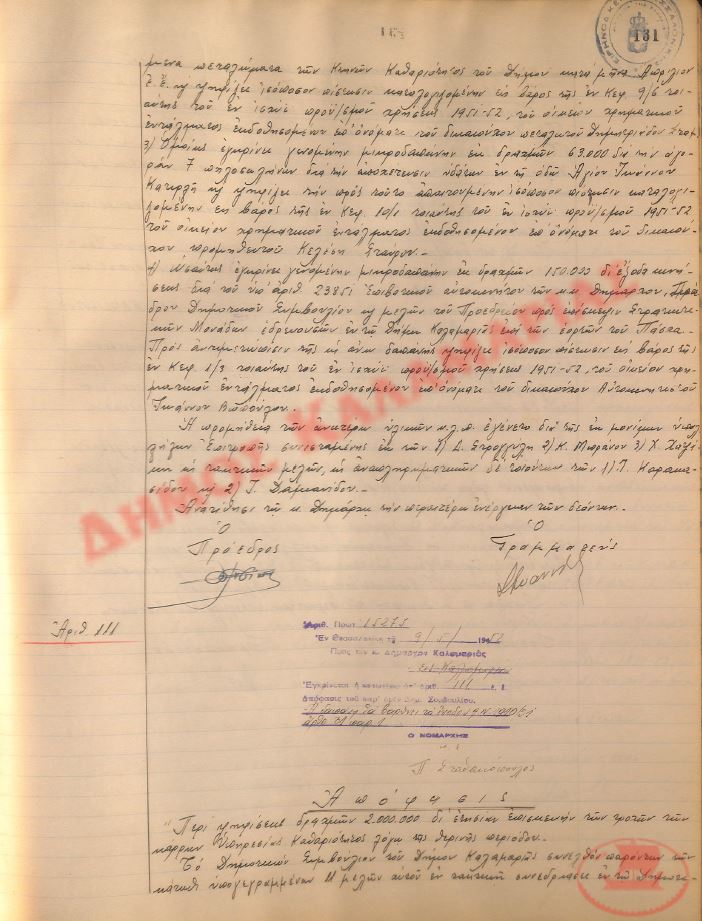 131
μενα πεταλώματα τῶν Κτηνῶν Καθαριότητος τοῦ Δήμου κατὰ μῆνα Ἀπρίλιον
ἔ.ἔ. καὶ ψηφίζει ἰσόποσον πίστωσιν καταλογιζομένην εἰς βάρος τῆς ἐν Κεφ. 9/6 τοι-
αύτης τοῦ ἐν ἰσχύι προϋ/σμοῦ χρήσεως 1951-52, τοῦ οἰκείου χρηματικοῦ
ἐντάλματος ἐκδοθησομένου ἐπ' ὀνόματι τοῦ δικαιούχου πεταλωτοῦ
3) Ὁμοίως ἐγκρίνει γενομένην μικροδαπάνην ἐκ δραχμῶν 63.000 διὰ τὴν ἀγο-
ρὰν 7 πηλοσωλήνων διὰ τὴν ἀποχέτευσιν ὑδάτων ἐν τῇ ὁδῷ Ἁγίου Ἰωάννου
καὶ ψηφίζει τὴν πρὸς τοῦτο ἀπαιτουμένην ἰσόποσον πίστωσιν καταλογι-
ζομένην εἰς βάρος τῆς ἐν Κεφ. 10/1 τοιαύτης τοῦ ἐν ἰσχύι προϋ/σμοῦ 1951-52
τοῦ οἰκείου χρηματικοῦ ἐντάλματος ἐκδοθησομένου ἐπ' ὀνόματι τοῦ δικαιού-
χου προμηθευτοῦ Σταύρου.-
4) Ὡσαύτως ἐγκρίνει γενομένην μικροδαπάνην ἐκ δραχμῶν 150.000 δι' ἔξοδα κινή-
σεως διὰ τοῦ ὑπ' ἀριθ. 23851 ἐπιβατικοῦ αὐτοκινήτου τῶν κ.κ. Δημάρχου, Προέ-
δρου Δημοτικοῦ Συμβουλίου καὶ μελῶν τοῦ Προεδρείου πρὸς ἐπίσκεψιν Στρατιωτι-
κῶν Μονάδων ἑδρευουσῶν ἐν τῷ Δήμῳ Καλαμαριᾶς ἐπὶ τῶν ἑορτῶν τοῦ Πάσχα.
Πρὸς ἀντιμετώπισιν τῆς ὡς ἄνω δαπάνης ψηφίζει ἰσόποσον πίστωσιν εἰς βάρος τῆς
ἐν Κεφ. 1/3 τοιαύτης τοῦ ἐν ἰσχύι προϋ/σμοῦ χρήσεως 1951-52, τοῦ οἰκείου χρη-
ματικοῦ ἐντάλματος ἐκδοθησομένου ἐπ' ὀνόματι τοῦ δικαιούχου Αὐτοκινητιστοῦ
Ἰωάννου
Ἡ προμήθεια τῶν ἀνωτέρω ὑλικῶν κ.λ.π. ἐγένετο διὰ τῆς ἐκ μονίμων ὑπαλ-
λήλων Ἐπιτροπῆς συνισταμένης ἐκ τῶν 1) Δ. Στρογγύλη 2) Κ. 3) Χ.
ὡς τακτικῶν μελῶν, ὡς ἀναπληρωματικῶν δὲ τοιούτων τῶν 1) Καρακα-
σίδου καὶ 2) Γ. Δαμιανίδου.-
Ἀνατίθησι τῷ κ. Δημάρχῳ τὴν περαιτέρω ἐνέργειαν τῶν δεόντων.-
Ὁ Ὁ
Πρόεδρος Γραμματεύς
Ἀριθ. 111
Ἀριθ. Πρωτ. 15275
Ἐν Θεσσαλονίκῃ τῇ 9/5/ 1952
Πρὸς τὸν κ. Δήμαρχον Καλαμαριᾶς
Εἰς Καλαμαριὰ
Ἐγκρίνεται ἡ ὑπ' ἀριθ. 111 ἐ.ἔ.
ἀπόφασις τοῦ παρ' ὑμῖν Δημ. Συμβουλίου.
ἄρθρ. 31 παρ. 1
Ο ΝΟΜΑΡΧΗΣ
Π. Σταθακόπουλος
Ἀπόφασις
"Περὶ ψηφίσεως δραχμῶν 2.000.000 δι' ἐτησίαν ἐπισκευὴν τῶν τροχῶν τῶν
κάρρων Ὑπηρεσίας Καθαριότητος λόγῳ τῆς θερινῆς περιόδου.
Τὸ Δημοτικὸν Συμβούλιον τοῦ Δήμου Καλαμαριᾶς συνελθὸν παρόντων τῶν
κάτωθι ὑπογεγραμμένων 11 μελῶν αὐτοῦ ἐν τακτικῇ συνεδριάσει ἐν τῷ Δημοτι-
ΔΗΜΟΣ ΚΑΛΑΜΑΡΙΑΣ